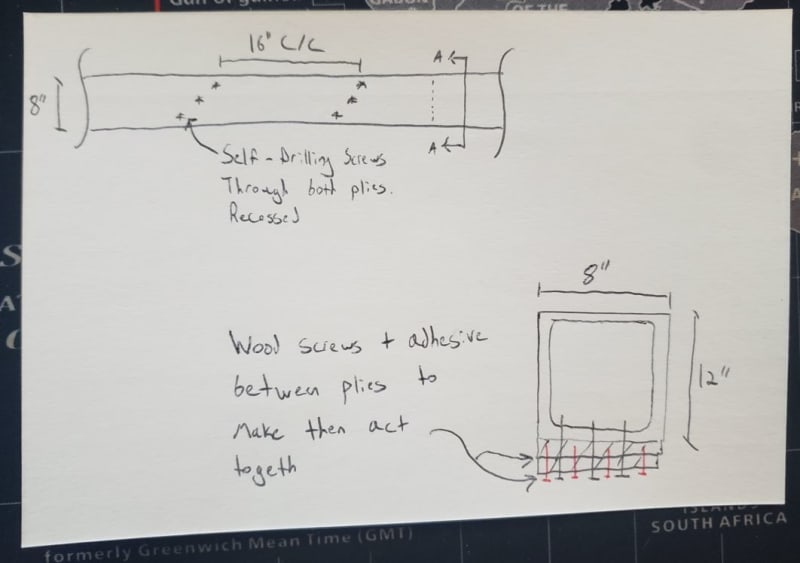 OF THE
16" C/C
A
8"
A
Self-Drilling Screws
Through both plies.
Recessed
8"
Wood screws + adhesive
between plies to
Make then act
togeth
12"
SOUTH AFRICA
formerly Greenwich Mean Time (GMT)